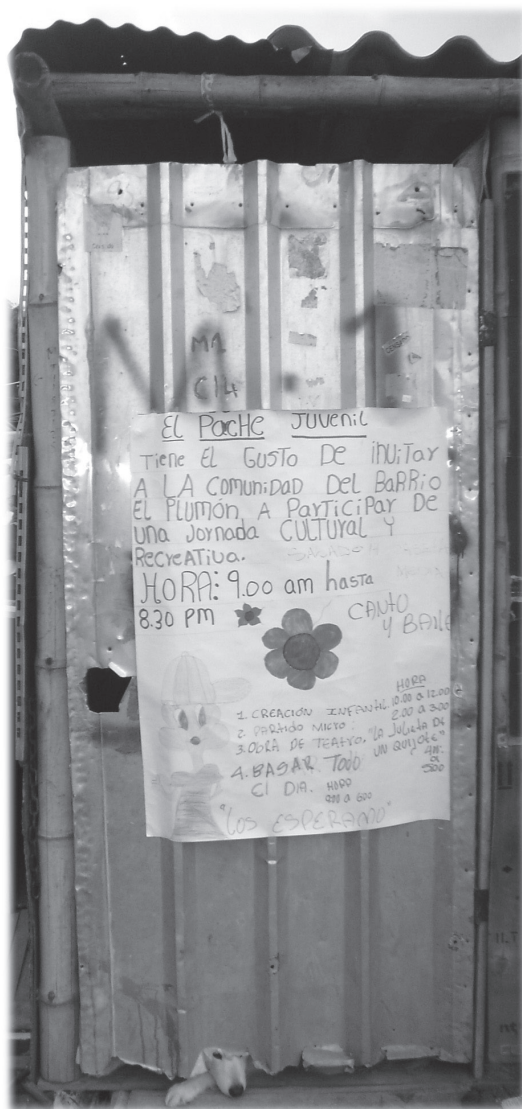 MA
C14
EL PacHe Juvenil
Tiene EL GUSTO DE iNViTAr
A LA COMUNiDAD DEl BaRRio
EL PLUMÓN, A ParTiciPar DE
una Jornada CULTURAL Y
RECREATiva.
HORA: 9.00 am hasta
8.30 PM
CANTO
Y BAILE
HORA
1. CREACIÓN INFANTIL 10.00 a 12.00
2. PARTIDO MICRO: 2.00 a 3:00
3. OBRA DE TEATRO, "LA JULIETA DE
UN QUIJOTE"
4. BASAR TODO
El DIA. HORA
"LOS ESPERAMO"